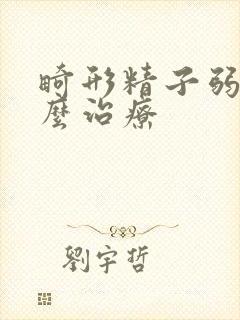 畸形精子弱
麼治療
劉宇哲